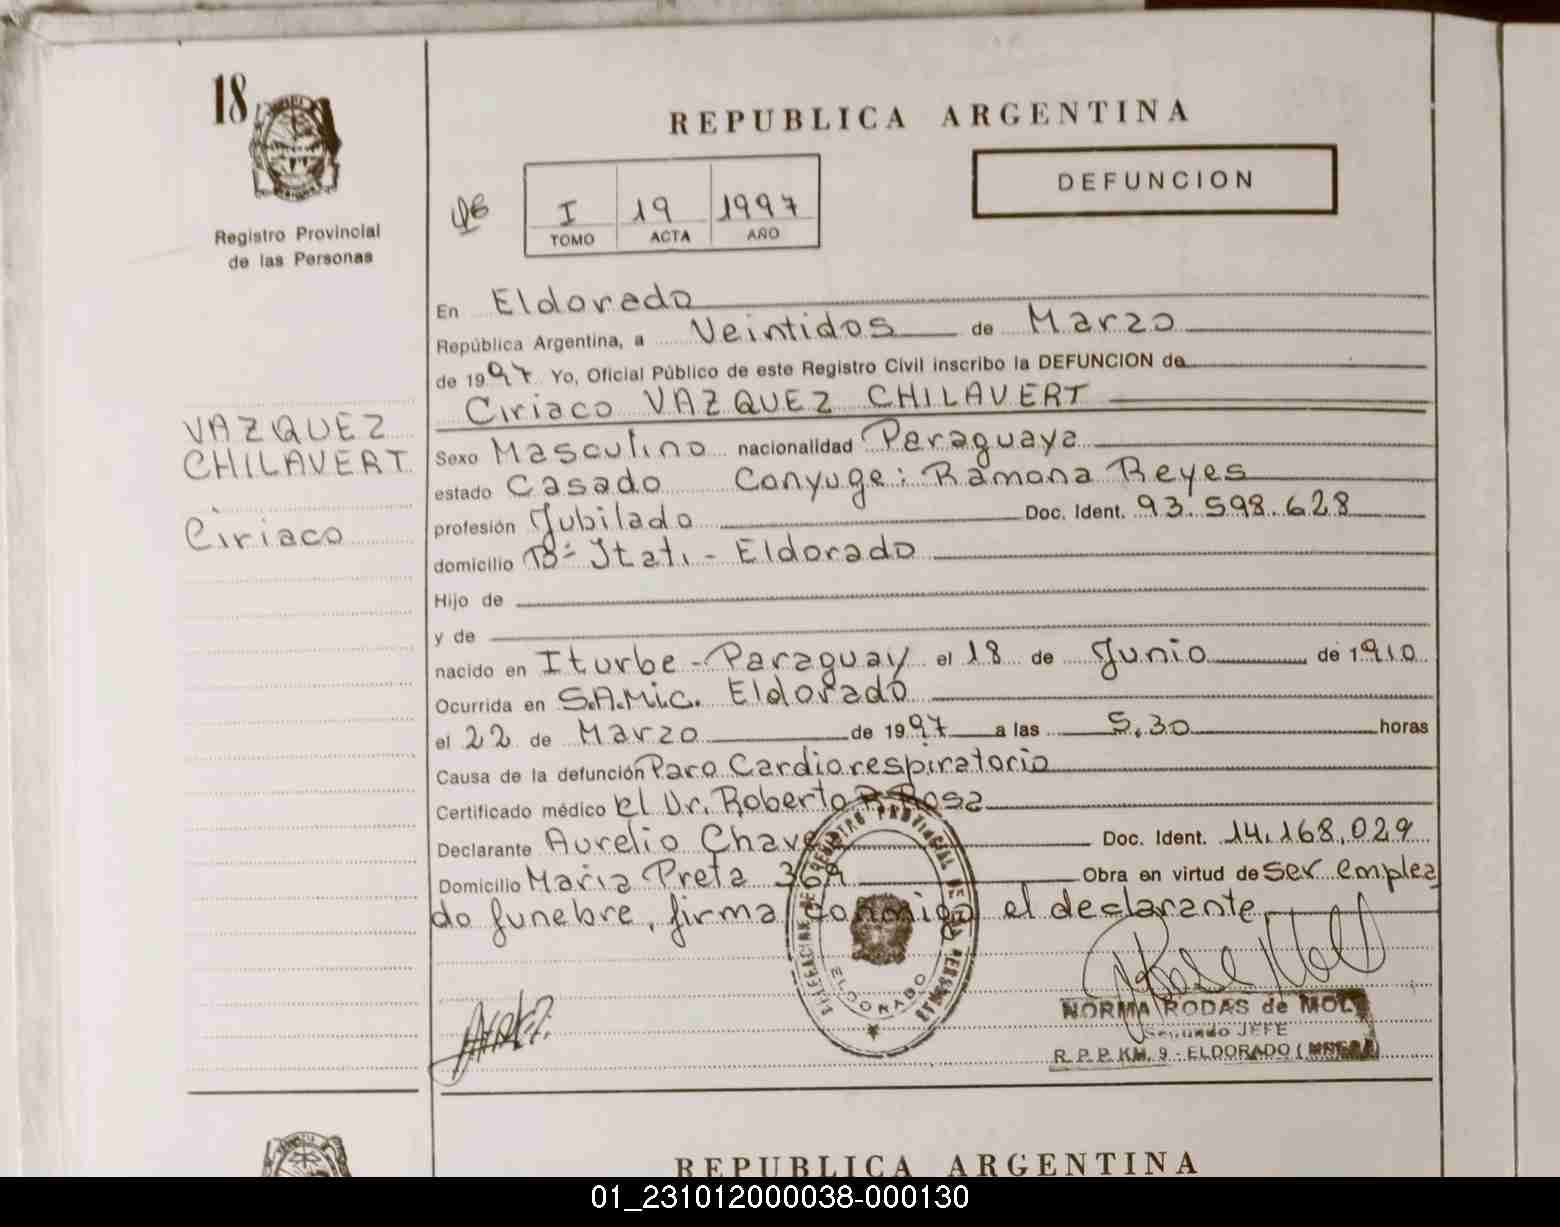 18
Registro Provincial
de las Personas
VAZQUEZ
CHILAVERT
Ciriaco
REPUBLICA ARGENTINA
DEFUNCION
I 19 1997
TOMO ACTA AÑO
En Eldorado
República Argentina, a Veintidos de Marzo
de 1997 Yo, Oficial Público de este Registro Civil inscribo la DEFUNCION de
Ciriaco VAZQUEZ CHILAVERT
Sexo Masculino nacionalidad Paraguaya
estado Casado Conyuge: Ramona Reyes
profesión Jubilado Doc. Ident. 93.598.628
domicilio Bº Itatí - Eldorado
Hijo de
y de
nacido en Iturbe - Paraguay el 18 de Junio de 1910
Ocurrida en S.A.Mi.C. Eldorado
el 22 de Marzo de 1997 a las 5.30 horas
Causa de la defunción Paro Cardiorespiratorio
Certificado médico el Dr. Roberto Rosa
Declarante Aurelio Chave Doc. Ident. 14.168.029
Domicilio Maria Preta 369 Obra en virtud de ser emplea
do funebre, firma conmigo el declarante
DELEGACION DE REGISTRO PROVINCIAL DE LAS PERSONAS
ELDORADO
NORMA RODAS de MOL
Segundo JEFE
R. P. P. KM. 9 - ELDORADO (
REPUBLICA ARGENTINA
01_231012000038-000130